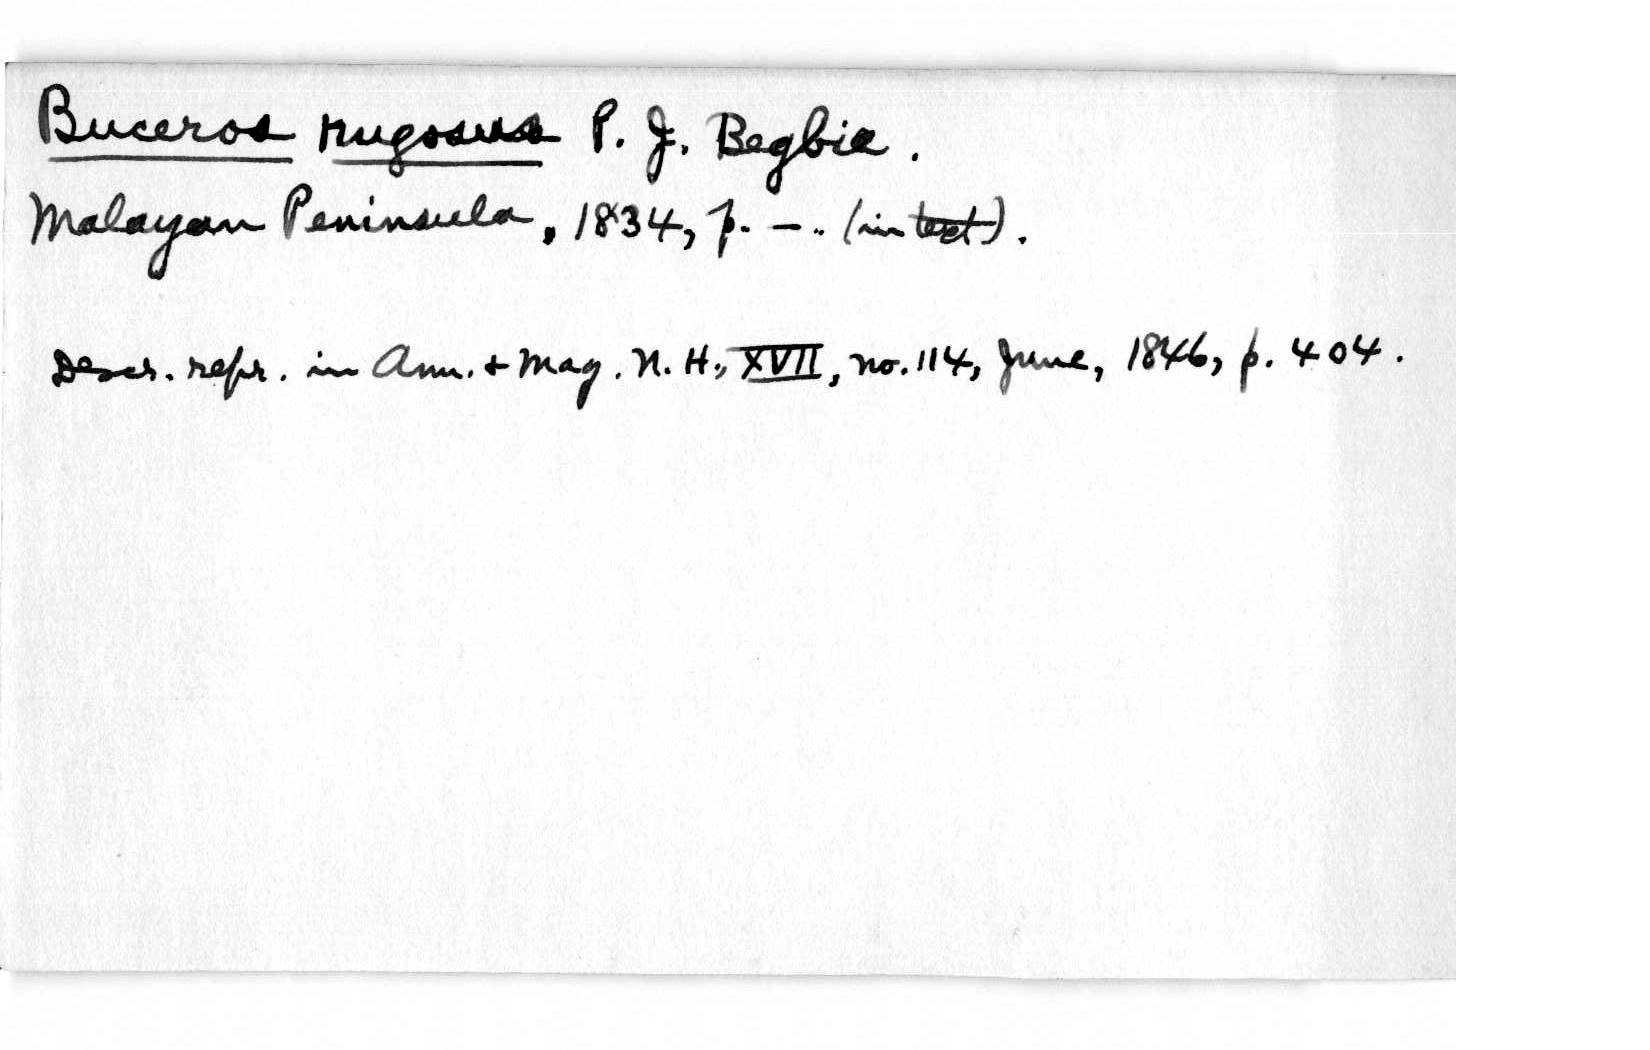 Buceros rugosus P. J. Begbie.
Malayan Peninsula, 1834, p. –.. (in text).
Descr. repr. in Ann. + Mag. N. H., XVII, no. 114, June, 1846, p. 404.